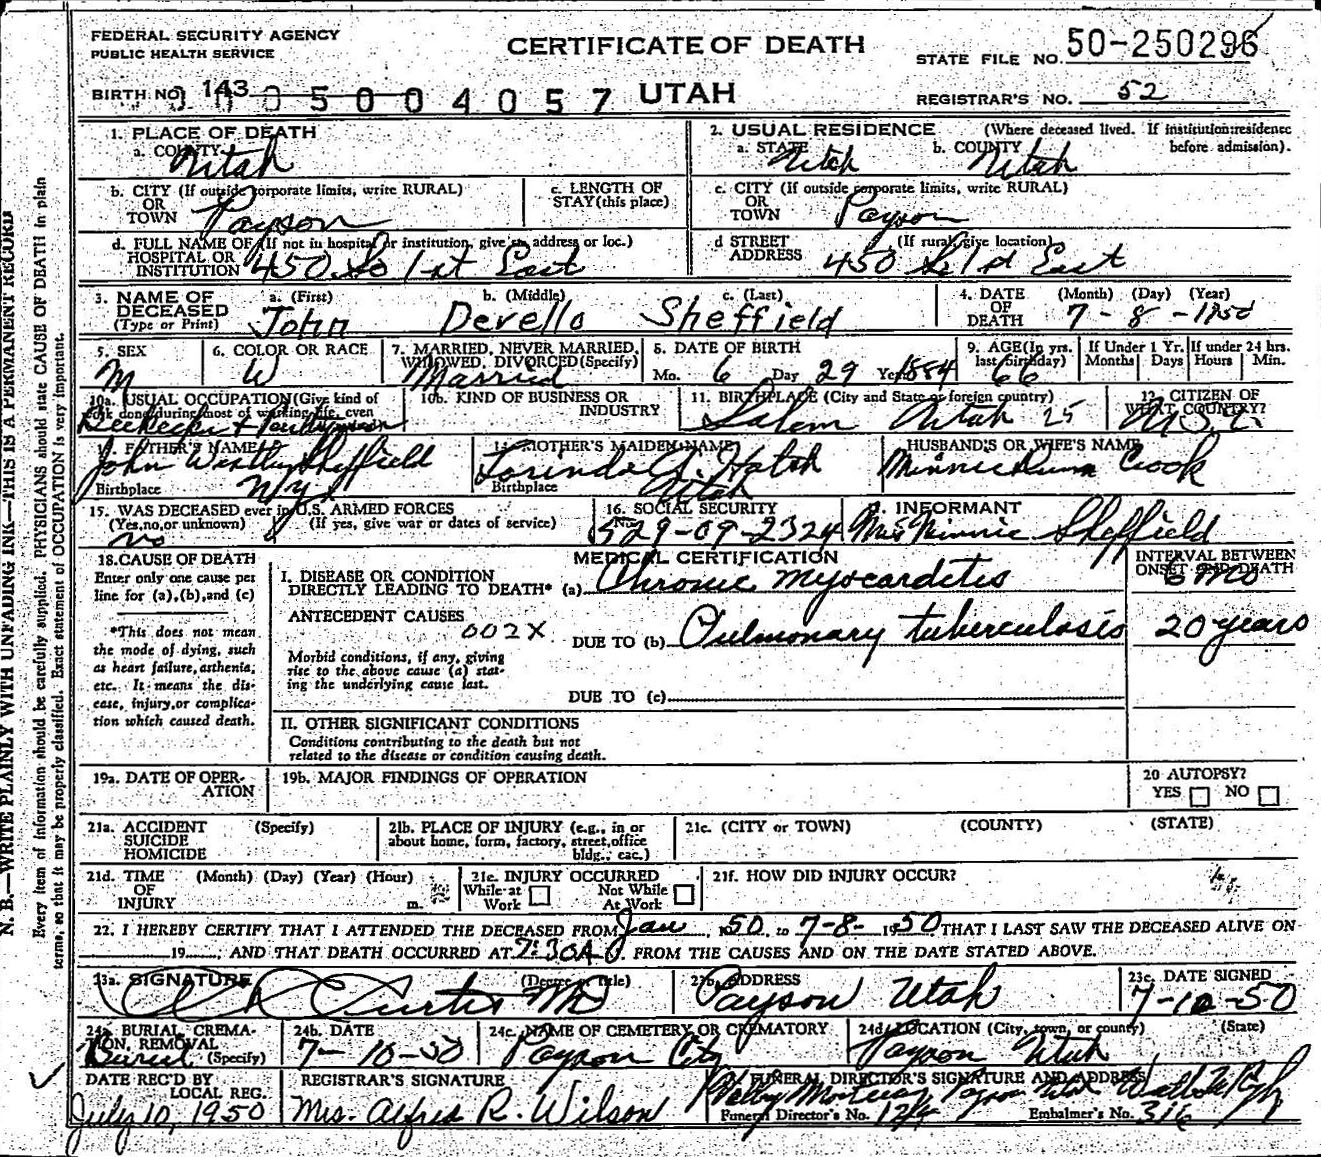 FEDERAL SECURITY AGENCY
PUBLIC HEALTH SERVICE
CERTIFICATE OF DEATH
STATE FILE NO. 50-250296
BIRTH NO. 143
005004057 UTAH
REGISTRAR'S NO. 52
1. PLACE OF DEATH
a. COUNTY Utah
2. USUAL RESIDENCE (Where deceased lived. If institution: residence before admission).
a. STATE Utah b. COUNTY Utah
b. CITY (If outside corporate limits, write RURAL)
OR
TOWN Payson
c. LENGTH OF
STAY (this place)
c. CITY (If outside corporate limits, write RURAL)
OR
TOWN Payson
d. FULL NAME OF (If not in hospital or institution, give st. address or loc.)
HOSPITAL OR
INSTITUTION 450 So 1st East
d STREET (If rural, give location)
ADDRESS 450 So 1st East
3. NAME OF
DECEASED
(Type or Print)
a. (First) b. (Middle) c. (Last)
John Devello Sheffield
4. DATE
OF
DEATH
(Month) (Day) (Year)
7-8-1950
5. SEX
M
6. COLOR OR RACE
W
7. MARRIED, NEVER MARRIED,
WIDOWED, DIVORCED (Specify)
Married
8. DATE OF BIRTH
Mo. 6 Day 29 Year 1884
9. AGE (In yrs.
last birthday)
66
If Under 1 Yr.
Months Days
If under 24 hrs.
Hours Min.
10a. USUAL OCCUPATION (Give kind of
work done during most of working life, even
10b. KIND OF BUSINESS OR
INDUSTRY
11. BIRTHPLACE (City and State or foreign country)
Salem Utah 25
12. CITIZEN OF
WHAT COUNTRY?
U.S.A.
13. FATHER'S NAME
John Westley Sheffield
Birthplace N.Y.
14. MOTHER'S MAIDEN NAME
Lorinda A. Hatch
Birthplace Utah
HUSBAND'S OR WIFE'S NAME
Minnie Crook
15. WAS DECEASED ever in U.S. ARMED FORCES
(Yes, no, or unknown) (If yes, give war or dates of service)
no
16. SOCIAL SECURITY
No.
529-09-2324
17. INFORMANT
Mrs Minnie Sheffield
18. CAUSE OF DEATH
Enter only one cause per
line for (a), (b), and (c)
*This does not mean
the mode of dying, such
as heart failure, asthenia,
etc. It means the dis-
ease, injury, or complica-
tion which caused death.
MEDICAL CERTIFICATION
INTERVAL BETWEEN
ONSET AND DEATH
I. DISEASE OR CONDITION
DIRECTLY LEADING TO DEATH* (a) Chronic Myocardetis 6 mo
ANTECEDENT CAUSES
002X
DUE TO (b) Pulmonary tuberculosis 20 years
Morbid conditions, if any, giving
rise to the above cause (a) stat-
ing the underlying cause last.
DUE TO (c)
II. OTHER SIGNIFICANT CONDITIONS
Conditions contributing to the death but not
related to the disease or condition causing death.
19a. DATE OF OPER-
ATION
19b. MAJOR FINDINGS OF OPERATION
20 AUTOPSY?
YES NO
21a. ACCIDENT (Specify)
SUICIDE
HOMICIDE
21b. PLACE OF INJURY (e.g., in or
about home, form, factory, street, office
bldg., eac.)
21c. (CITY or TOWN) (COUNTY) (STATE)
21d. TIME (Month) (Day) (Year) (Hour)
OF
INJURY m.
21e. INJURY OCCURRED
While at Work
Not While At Work
21f. HOW DID INJURY OCCUR?
22. I HEREBY CERTIFY THAT I ATTENDED THE DECEASED FROM Jan, 1950, to 7-8-1950 THAT I LAST SAW THE DECEASED ALIVE ON
19, AND THAT DEATH OCCURRED AT 7:30 A. FROM THE CAUSES AND ON THE DATE STATED ABOVE.
23a. SIGNATURE (Degree or title)
Curtis MD
23b. ADDRESS
Payson Utah
23c. DATE SIGNED
7-10-50
24a. BURIAL, CREMA-
TION, REMOVAL
Burial (Specify)
24b. DATE
7-10-50
24c. NAME OF CEMETERY OR CREMATORY
Payson City
24d. LOCATION (City, town, or county) (State)
Payson Utah
DATE REC'D BY
LOCAL REG.
July 10, 1950
REGISTRAR'S SIGNATURE
Mrs. Alfred R. Wilson
FUNERAL DIRECTOR'S SIGNATURE AND ADDRESS
Payson Utah
Funeral Director's No. Embalmer's No. 316
N. B.—WRITE PLAINLY WITH UNFADING INK—THIS IS A PERMANENT RECORD
Every item of information should be carefully supplied. PHYSICIANS should state CAUSE OF DEATH in plain
terms, so that it may be properly classified. Exact statement of OCCUPATION is very important.